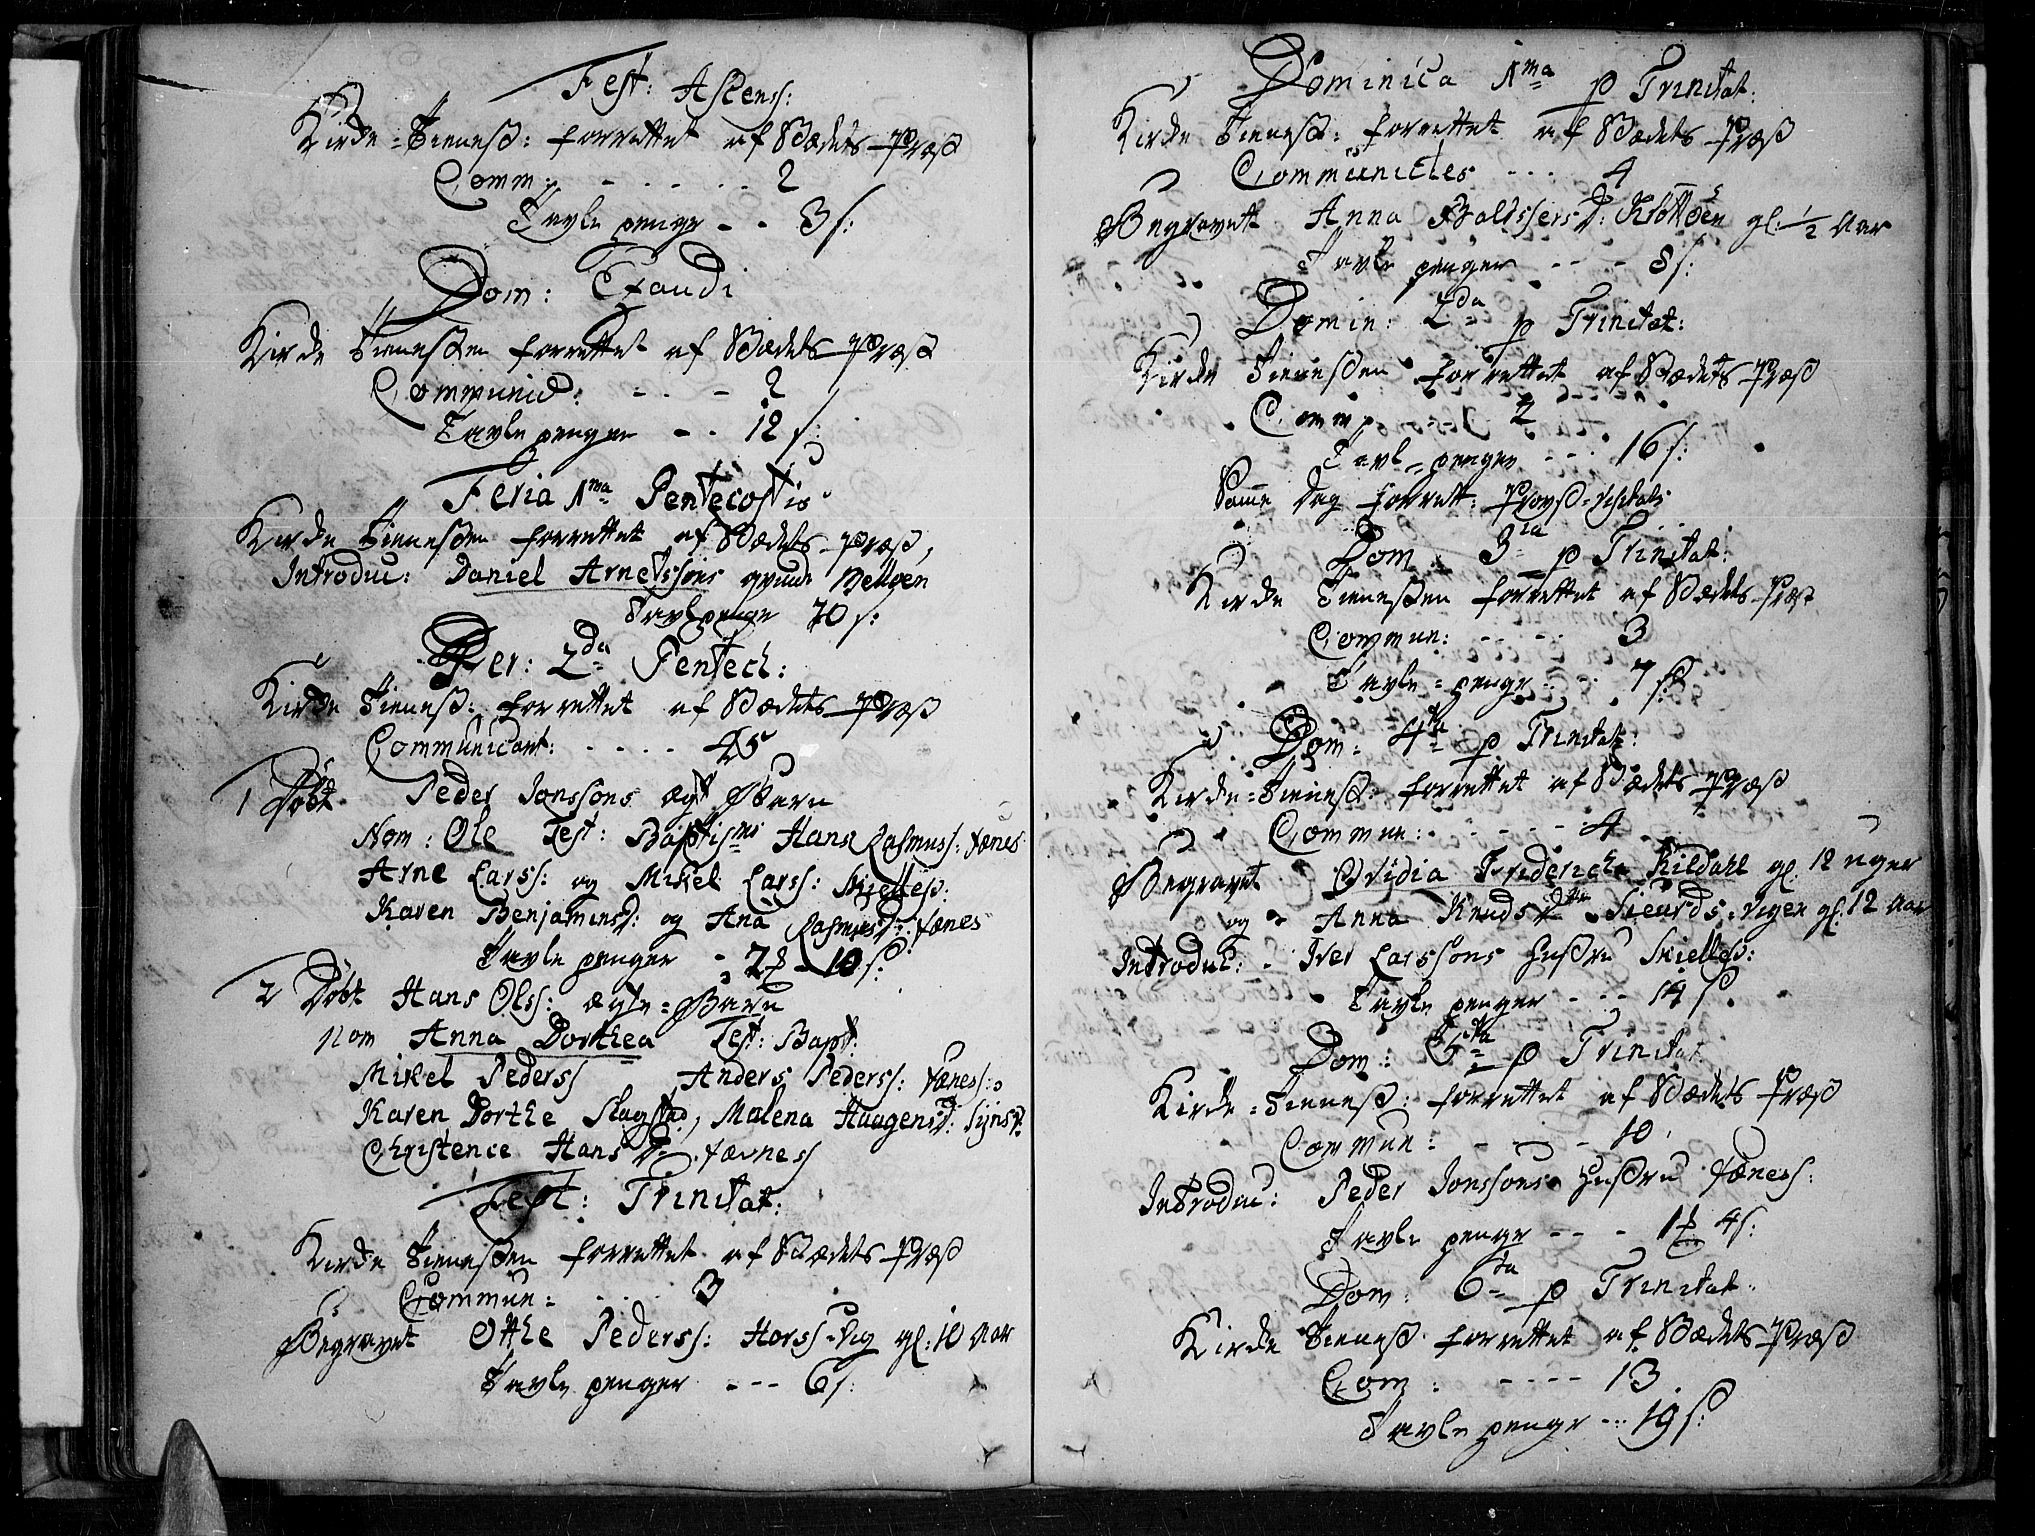 Fest: Ascens:
Kirke-Tieneste: forrettet af Stædets Præst
Comm: - - - - - 2
Tavle penger - - 3 s:
Dom: Exaudi
Kirke Tienesten forrettet af Stædets Præst
Communic: - - - 2
Tavle penger - - 12 s:
Feria 1ma Pentecostis
Kirke Tienesten forrettet af Stædets Præst,
Introduc: Daniel Arnetssons qvinde Belløen
Tavlpenge 20 s:
Fer: 2da Pentech:
Kirke Tienest: forrettet af Stædets Præst
Communicant: - - - - 45
1 Døbt Peder Jonssons ægt Barn
Nom: Ole Test: Baptismi Hans Rasmuss: Fænes
Arne Larss: og Mikel Larss: Skielles:
Karen Benjaminsd: og Ana Rasmusdr: Fænes
Tavle penger - 2 - 10 s:
2 Døbt Hans Olss: ægte-Barn
Nom Anna Dorthea Test: Bapt:
Mikel Peders Anders Peders: Fæness:
Karen Dorthe Slagstad, Malena Haagensd:
Christence Hansd: Fævnes
Fest: Trinitat:
Kirke Tienesten forrettet af Stædets Præst
Commun: - - - - 3
Begravet Otthe Peders: Horss-Vig gl: 10 Aar
Tavle penger - - - 6 s:
Dominica 1ma p Trinitat:
Kirke Tienest: forrettet af Stædets Præst
Communictes - - - 4
Begravet Anna Baltssers D: Kløttøen gl: 1/2 Aar
Tavle penger - - - 8 s:
Domin: 2da p Trinitat:
Kirke Tienesten forrettet af Stædets Præst
Comm - - - 2
Tavle-penger - - - 16 s:
Samme dag forrett: Provst-Visitats
Dom: 3ia p Trinitat:
Kirke Tienesten forrettet af Stædets Præst
Commun: - - - - 3
Tavle-penge - - 7 s:
Dom: 4ta p Trinitat:
Kirke-Tienest: forrettet af Stædets Præst
Commun: - - - - - 4
Begravet Ovidia Friderichs Kildahl gl: 12 uger
og Anna Knuds dtr Sieurds-Vigen gl: 12 Aar
Introduc: Iver Larssons Hustru Skielles:
Tavle penger - - - 14 s:
Dom: 5ta p Trinitat
Kirke-Tienest: forrettet af Stædets Præst
Commun: - - - 10
Introduc: Peder Jonssons Hustru Fæness:
Tavle penge - - - 1 4 s:
Dom: 6ta p Trinitat.
Kirke Tienest forrettet af Stædets Præst
Com: - - - - 13
Tavle penge - - 19 s: